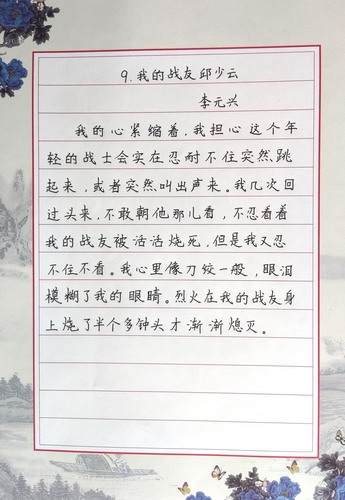 9.我的战友邱少云
李元兴
我的心紧缩着,我担心这个年
轻的战士会实在忍耐不住突然跳
起来,或者突然叫出声来。我几次回
过头来,不敢朝他那儿看,不忍看着
我的战友被活活烧死,但是我又忍
不住不看。我心里像刀绞一般,眼泪
模糊了我的眼睛。烈火在我的战友身
上烧了半个多钟头才渐渐熄灭。